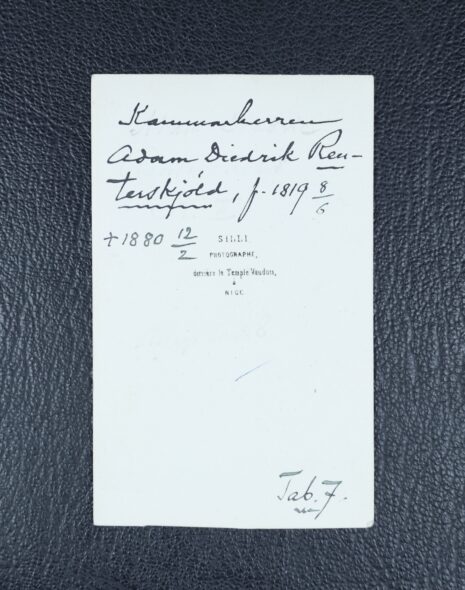 Kammarherren
Adam Diedrik Reu-
terskjöld, f. 1819 8/6
+ 1880 12/2
SILLI
PHOTOGRAPHE,
derrière le Temple Vaudois,
à
NICE
Tab. 7.